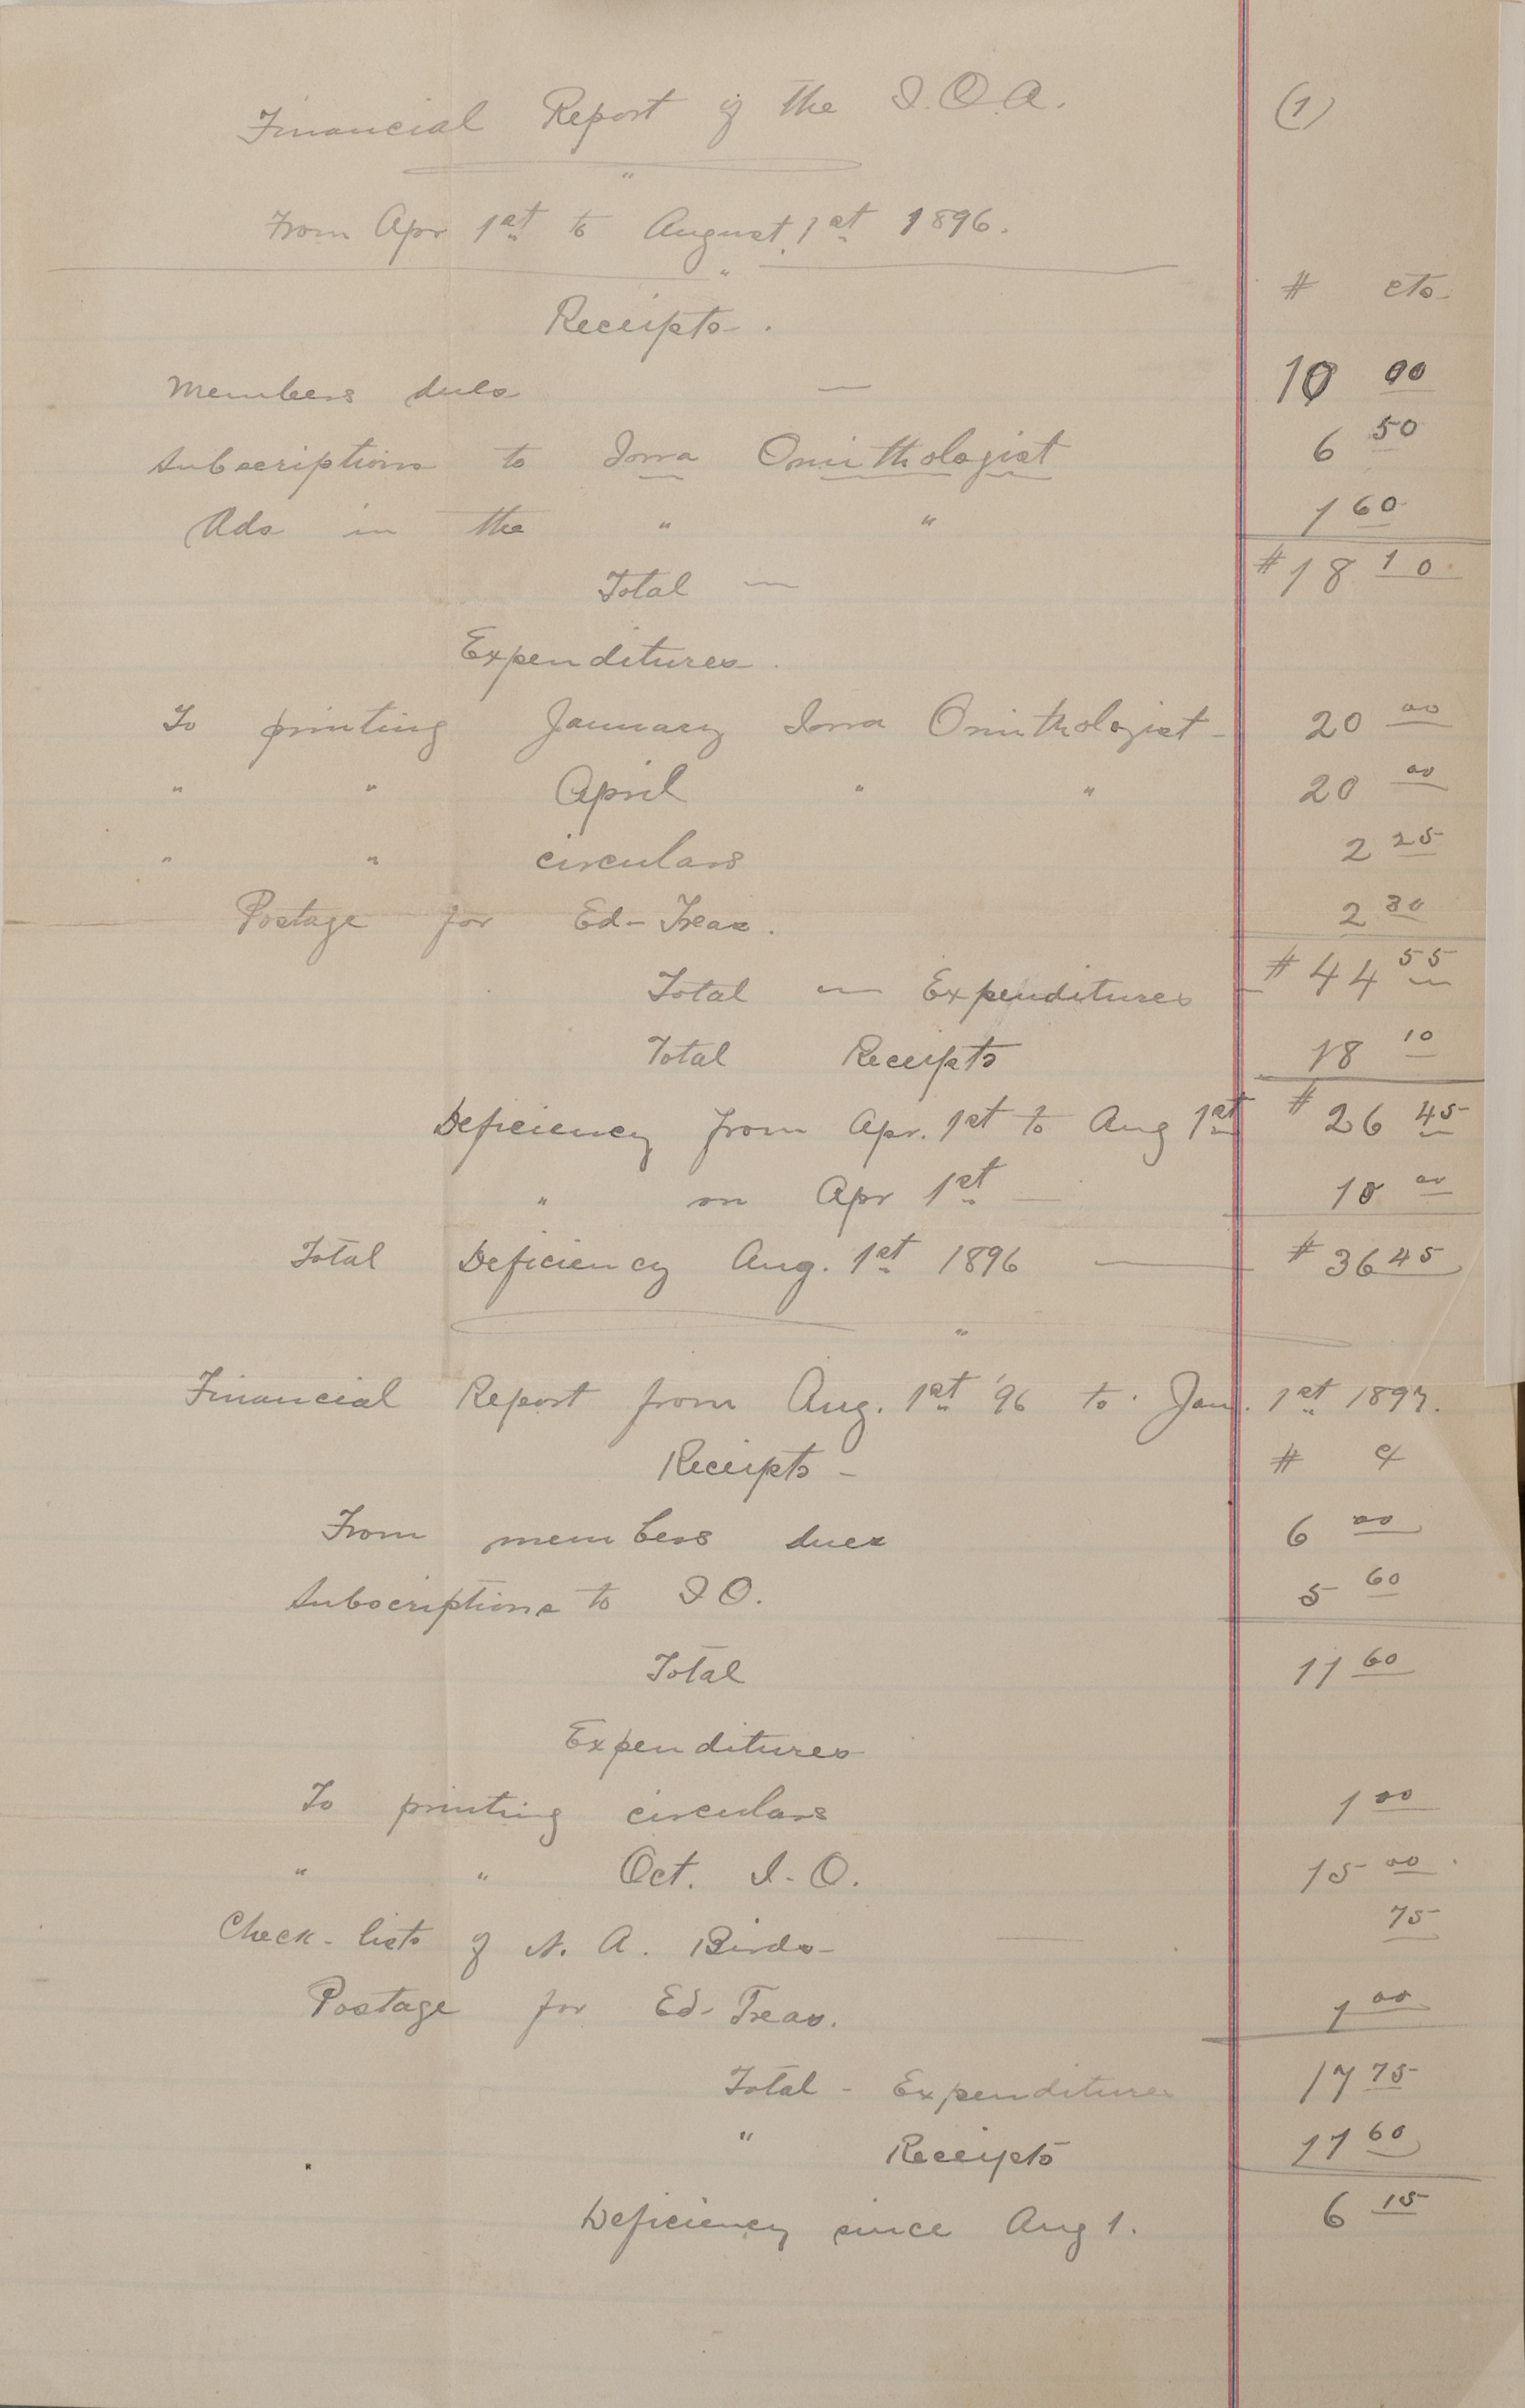 Financial Report of the I.O.A. (1)
"
From Apr 1st to August 1st 1896.
"
# cts
Receipts.
Members dues — 10 00
Subscriptions to Iowa Ornithologist 6 50
Ads in the " " 1 60
Total — # 18 10
Expenditures.
To printing January Iowa Ornithologist - 20 00
" " April " " 20 00
" " circulars 2 25
Postage for Ed-Treas. 2 30
Total — Expenditures - # 44 55
Total Receipts 18 10
Deficiency from Apr. 1st to Aug 1st # 26 45
" on Apr 1st — 10 00
Total Deficiency Aug. 1st 1896 — # 36 45
"
Financial Report from Aug. 1st '96 to Jan. 1st 1897.
Receipts - # ¢
From members dues 6 00
Subscriptions to I O. 5 60
Total 11 60
Expenditures
To printing circulars 1 00
" " Oct. I.O. 15 00
Check-lists of N. A. Birds - — 75
Postage for Ed-Treas. 1 00
Total - Expenditures 17 75
" Receipts 11 60
Deficiency since Aug 1. 6 15